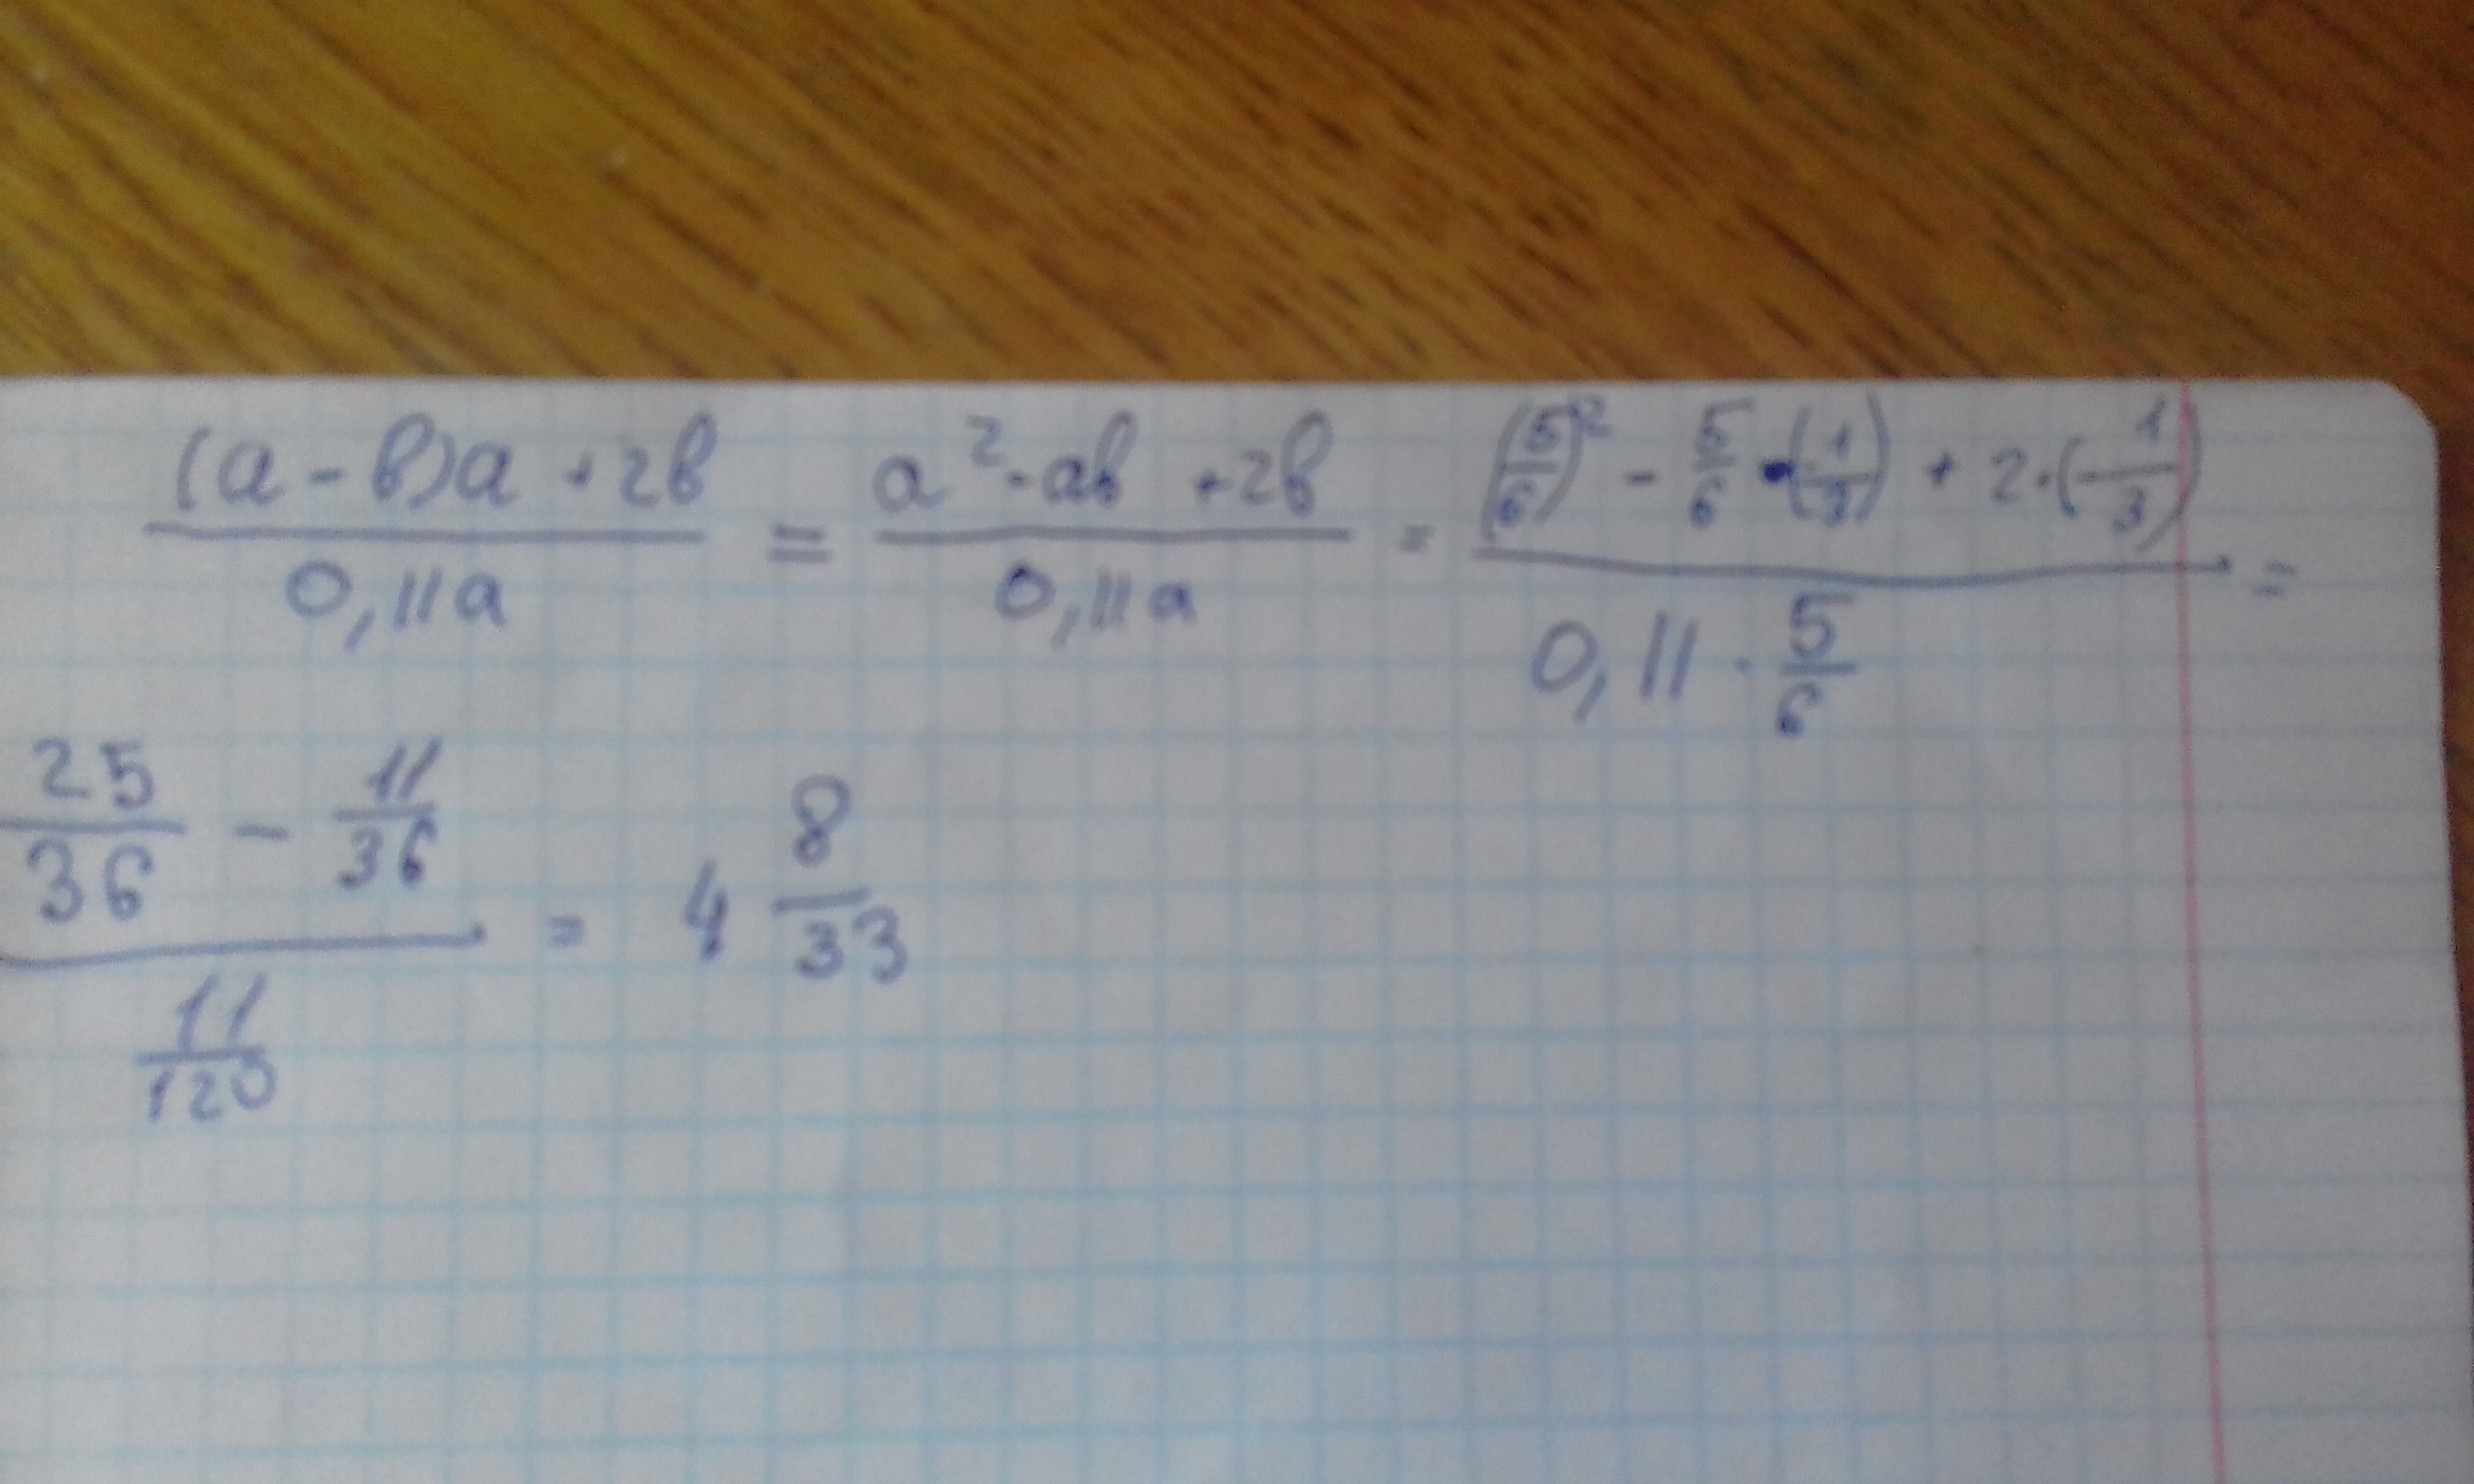 (a - в)a + 2в / 0,11a = a² - aв + 2в / 0,11a = (5/6)² - 5/6 · (1/3) + 2 · (-1/3) / 0,11 · 5/6 =
25/36 - 11/36 / 11/120 = 4 8/33